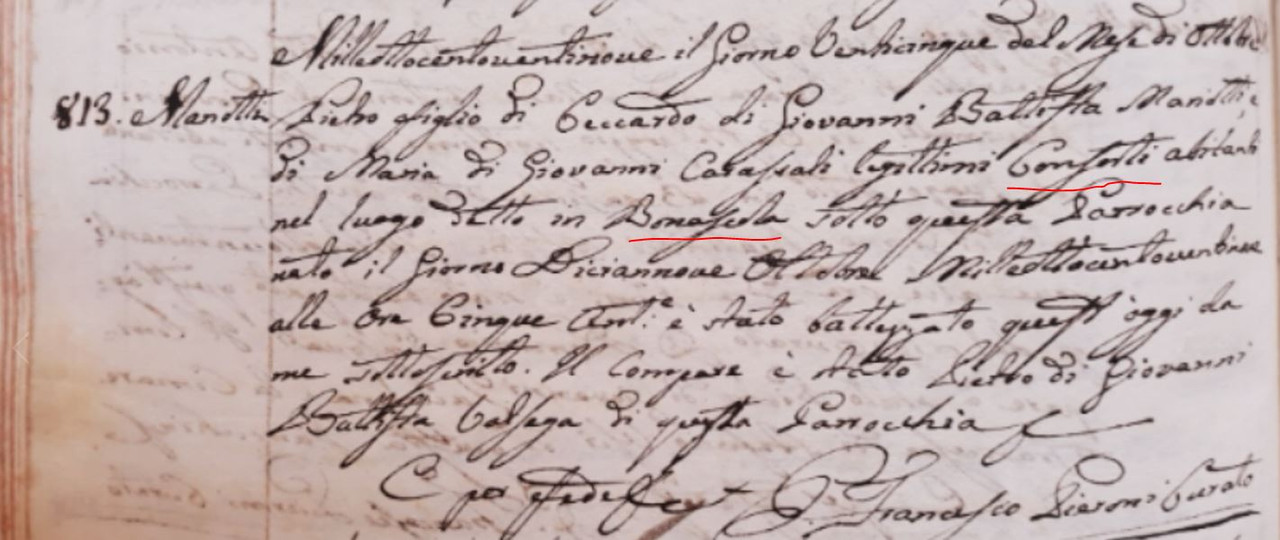 Milleottocentoventinove il Giorno Venticinque del Mese di Ottobre
813. Manotti Pietro figlio di Ceccardo di Giovanni Battista Manotti e
di Maria di Giovanni legittimi Consorti abitanti
nel luogo detto in Bonascola sotto questa Parrocchia
nato il Giorno Diciannove Ottobre Milleottocentoventinove
alle Ore Cinque Ant.e è stato battezzato quest'oggi da
me sottoscritto. Il Compare è stato Pietro di Giovanni
Battista di questa Parrocchia
E per fede P. Francesco Pieroni Curato